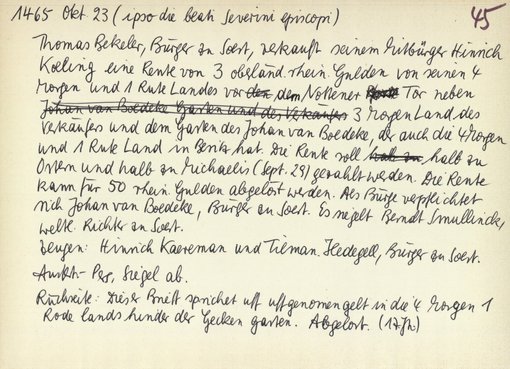 1465 Okt 23 (ipso die beati Severini episcopi) 45
Thomas Bekeler, Bürger zu Soest, verkauft seinem Mitbürger Hinrich
Koeling eine Rente von 3 oberländ. rhein. Gulden von seinen 4
Morgen und 1 Rute Landes vor den dem Nottener Tor neben
Johan van Boedeke Garten und des Verkäufers 3 Morgen Land des
Verkäufers und dem Garten des Johan van Boedeke, der auch die 4 Morgen
und 1 Rute Land in Besitz hat. Die Rente soll halb zu halb zu
Ostern und halb zu Michaelis (Sept. 29) gezahlt werden. Die Rente
kann für 50 rhein. Gulden abgelöst werden. Als Bürge verpflichtet
sich Johan van Boedeke, Bürger zu Soest. Es siegelt Bernat Smullinck,
weltl. Richter zu Soest.
Zeugen: Hinrich Kaereman und Tileman Hedegell, Bürger zu Soest.
Ausf.- Perg., Siegel ab.
Rückseite: Dieser Breiff sprichet uff uffgenomen gelt in die 4 Morgen 1
Rode lands hinder der Gecken garten. Abgelost. (17. Jh)